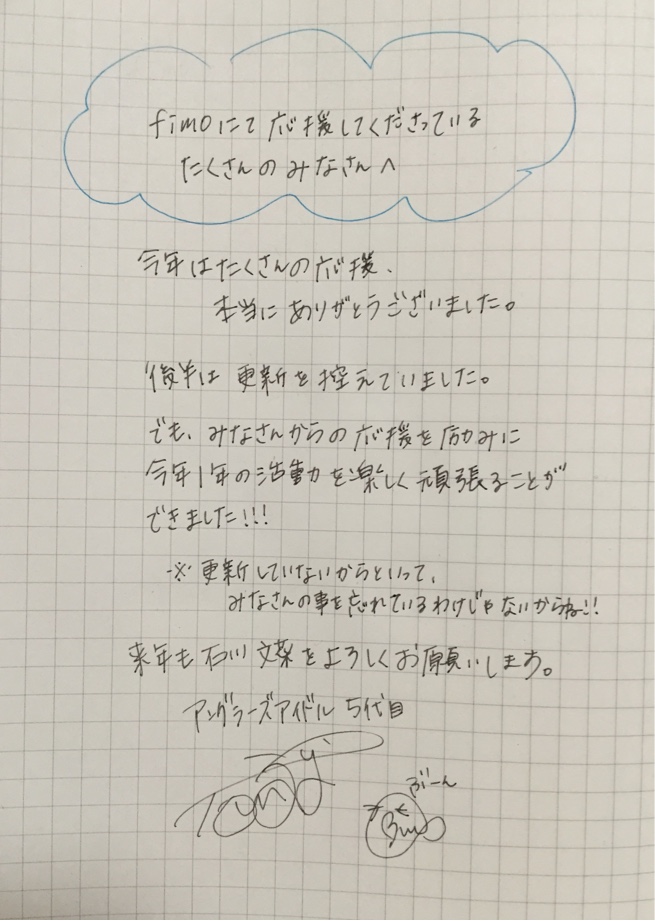 fimoにて応援してくださっている
たくさんのみなさんへ
今年はたくさんの応援、
本当にありがとうございました。
後半は更新を控えていました。
でも、みなさんからの応援を励みに
今年1年の活動を楽しく頑張ることが
できました!!!
※更新していないからといって、
みなさんの事を忘れているわけじゃないからね!!
来年も石川文菜をよろしくお願いします。
アングラーズアイドル 5代目
ぶーん